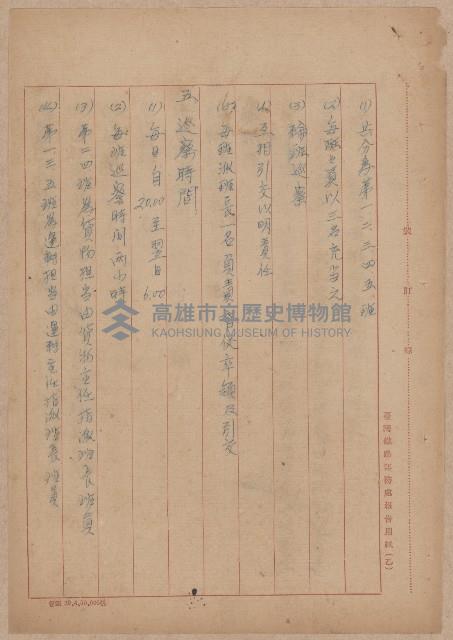 裝
訂
線
臺灣鐵路 務處報告用紙(乙)
(1) 共分為第一二三四五班
(2) 每班 員以三名充当之
(3) 輪班巡察
(4) 互相引交以明責任
(5) 每班派班長一名負責督促 率領及引交
五 巡察時間
(1) 每日自20.00至翌日6.00
(2) 每班巡察時間兩小時
(3) 第二四班為貨物担当由貨物主任指派班長班員
(4) 第一三五班為運轉担当由運轉主任指派班長班員
高雄市立歷史博物館
KAOHSIUNG MUSEUM OF HISTORY